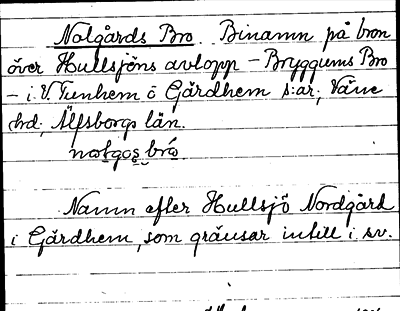 Nolgårds Bro Binamn på bron
över Hullsjöns avlopp – Bryggums Bro
– i V. Tunhem o Gärdhem s:ar, Väne
hd; Älfsborgs län.
Namn efter Hullsjö Nordgård
i Gärdhem, som gränsar intill i sv.